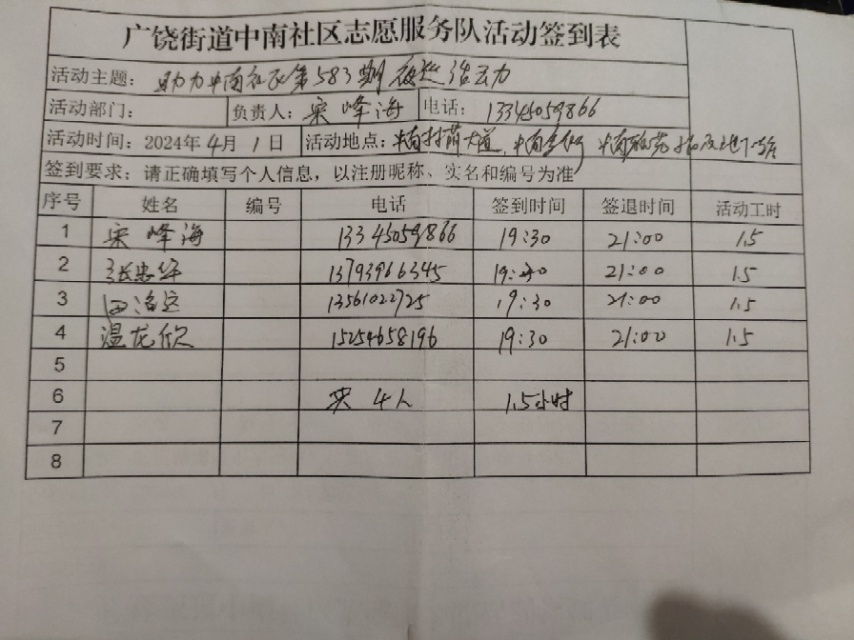 广饶街道中南社区志愿服务队活动签到表
活动主题: 助力中南社区第583期夜巡活动
活动部门: 负责人: 宋峰海 电话: 13345059866
活动时间: 2024年4月1日 活动地点: 中南 大道、中南
签到要求: 请正确填写个人信息，以注册昵称、实名和编号为准
序号 姓名 编号 电话 签到时间 签退时间 活动工时
1 宋峰海 13345059866 19:30 21:00 1.5
2 张忠华 13793966345 19:30 21:00 1.5
3 田洛运 13561022725 19:30 21:00 1.5
4 温龙欣 15254658196 19:30 21:00 1.5
5
6 共4人 1.5小时
7
8